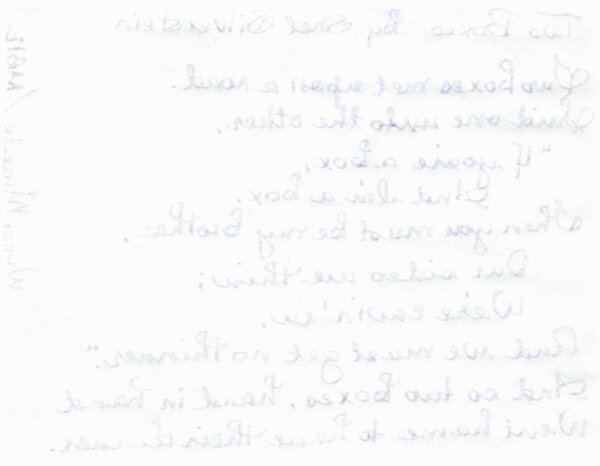 Two Boxes by Shel Silverstein
Two boxes met upon a road.
Said one unto the other,
"If you're a box,
And I'm a box,
Then you must be my brother.
Our sides are thin;
We're cavin' in,
And we must get no thinner."
And so two boxes, hand in hand
Went home to have their dinner.